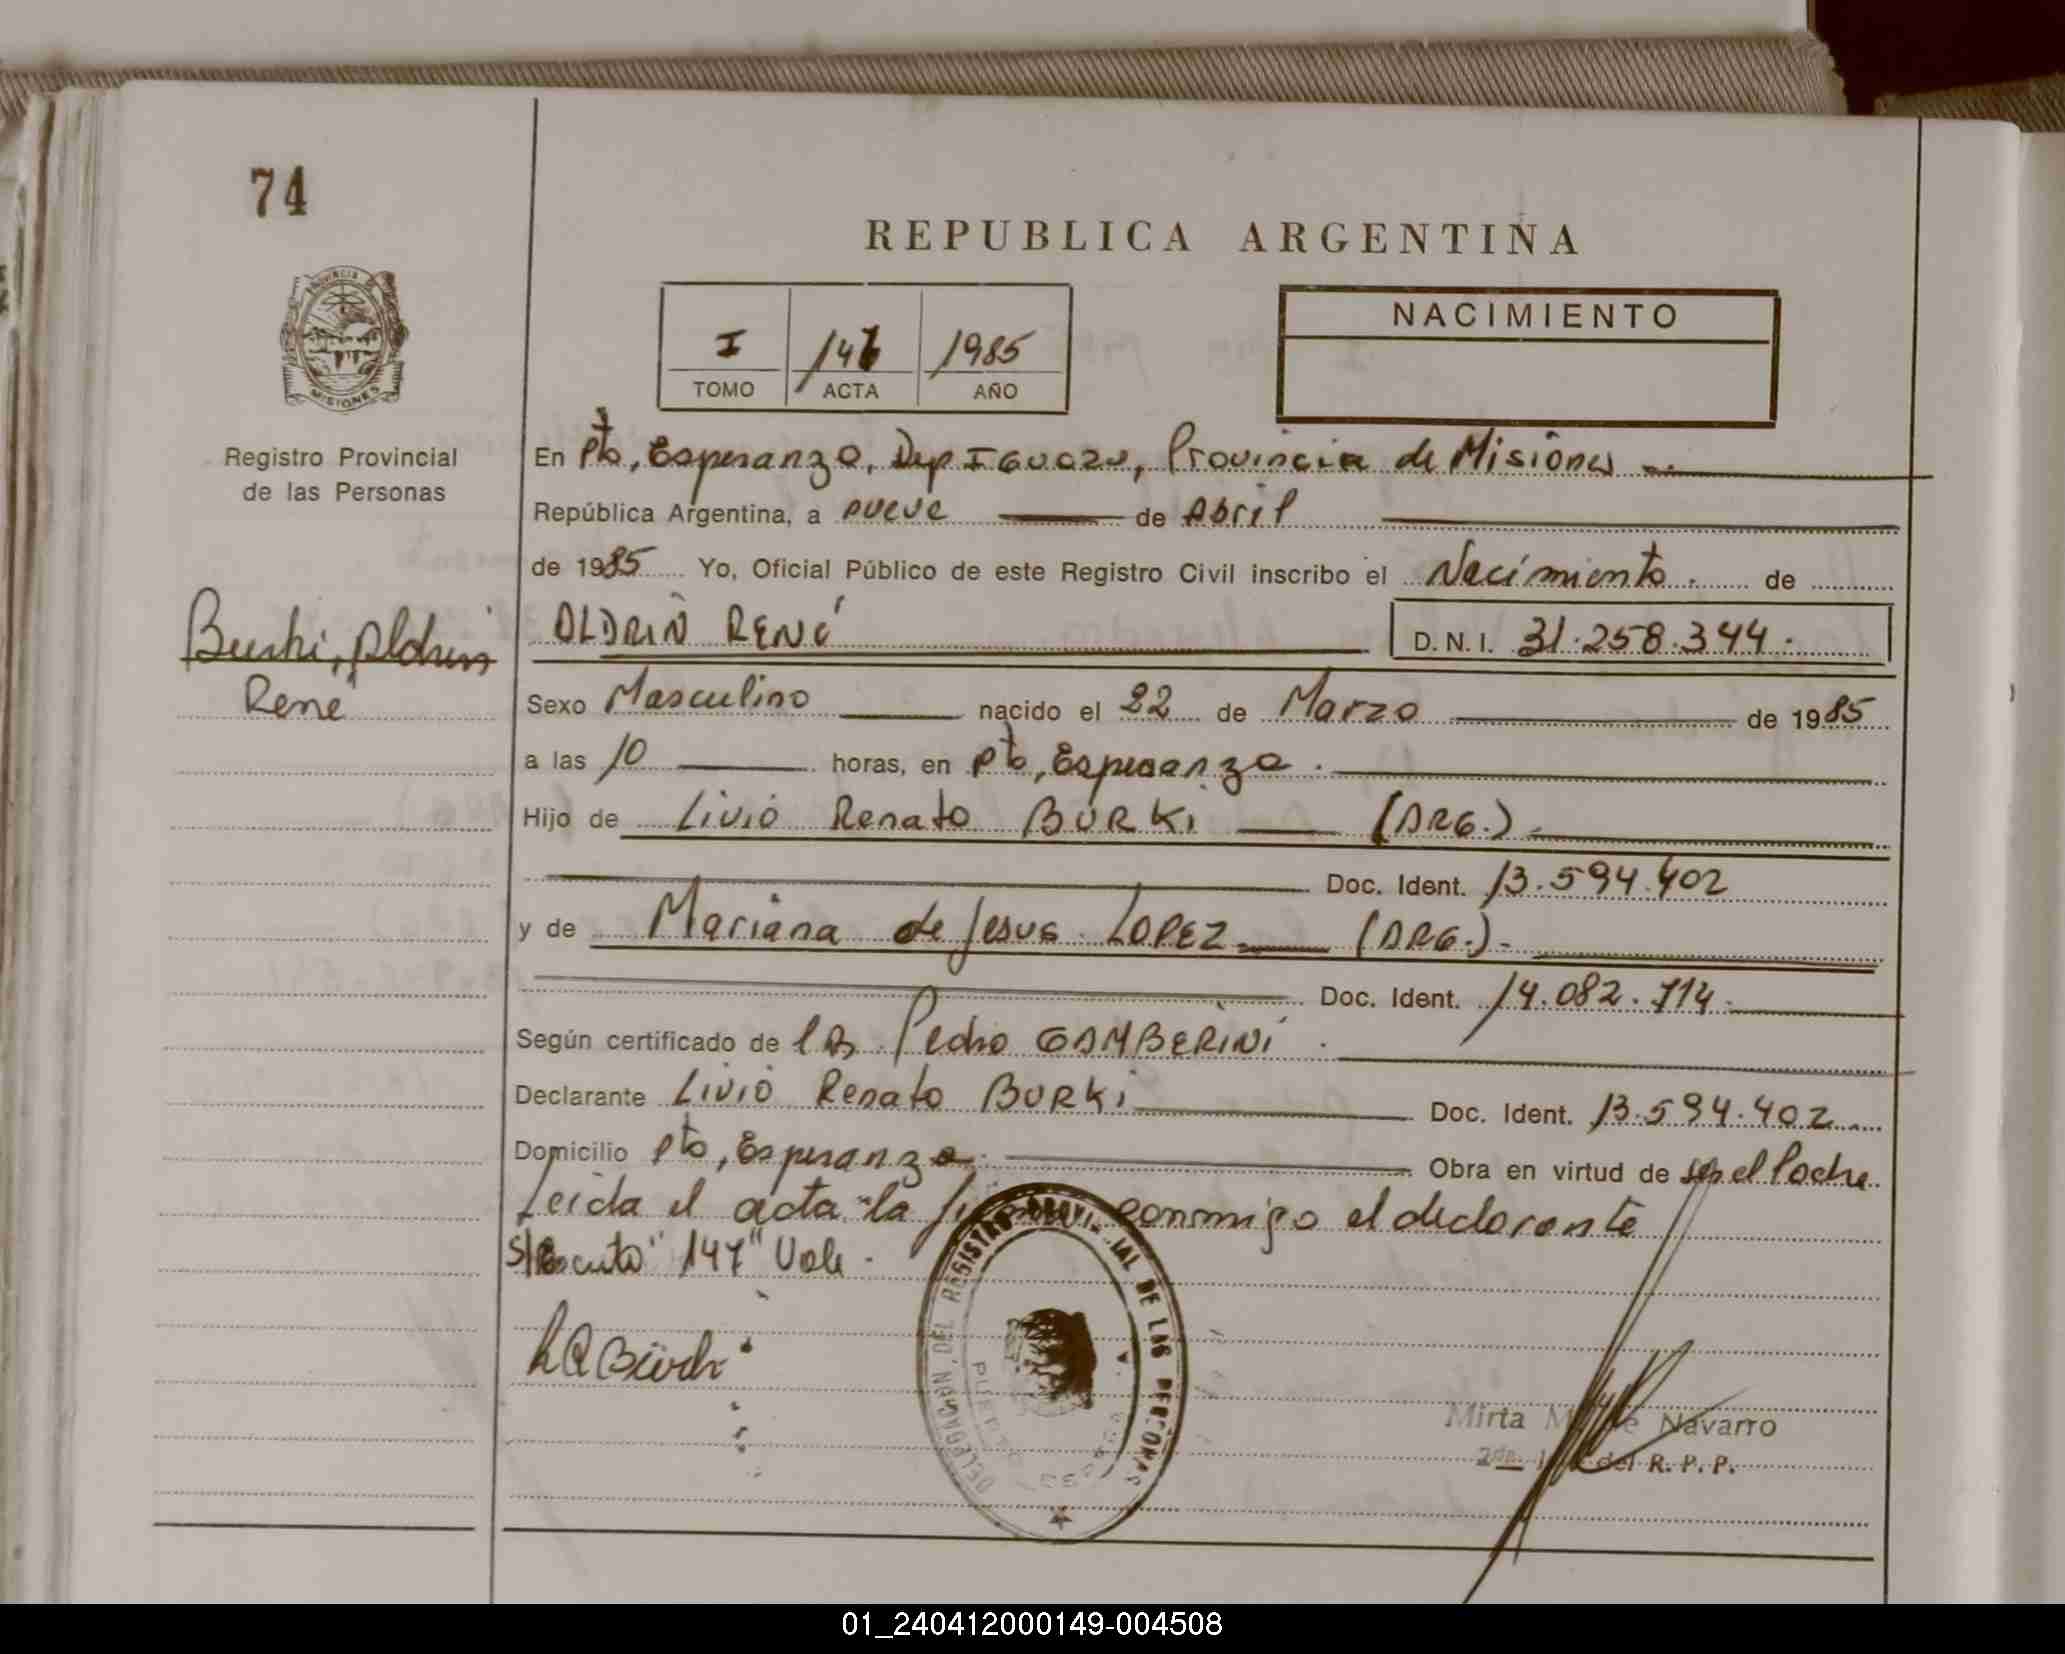 74
REPUBLICA ARGENTINA
PROVINCIA DE MISIONES
I 147 1985
TOMO ACTA AÑO
NACIMIENTO
Registro Provincial
de las Personas
Burki, Aldrin
René
En Pto, Esperanza, Dep IGUAZU, Provincia de Misiones
República Argentina, a nueve de Abril
de 1985 Yo, Oficial Público de este Registro Civil inscribo el Nacimiento. de
ALDRIN RENÉ D.N.I. 31.258.344.
Sexo Masculino nacido el 22 de Marzo de 1985
a las 10 horas, en Pto, Esperanza.
Hijo de Livio Renato BURKI (ARG.)
Doc. Ident. 13.594.402
y de Mariana de Jesus LOPEZ (ARG.)
Doc. Ident. 14.082.714
Según certificado de Pedro GAMBERINI.
Declarante Livio Renato BURKI Doc. Ident. 13.594.402
Domicilio Pto, Esperanza. Obra en virtud de ser el Padre
Leida el acta la conmigo el declarante
"147" Vale.
DELEGACION DEL REGISTRO PROVINCIAL DE LAS PERSONAS
Mirta Navarro
del R. P. P.
01_240412000149-004508